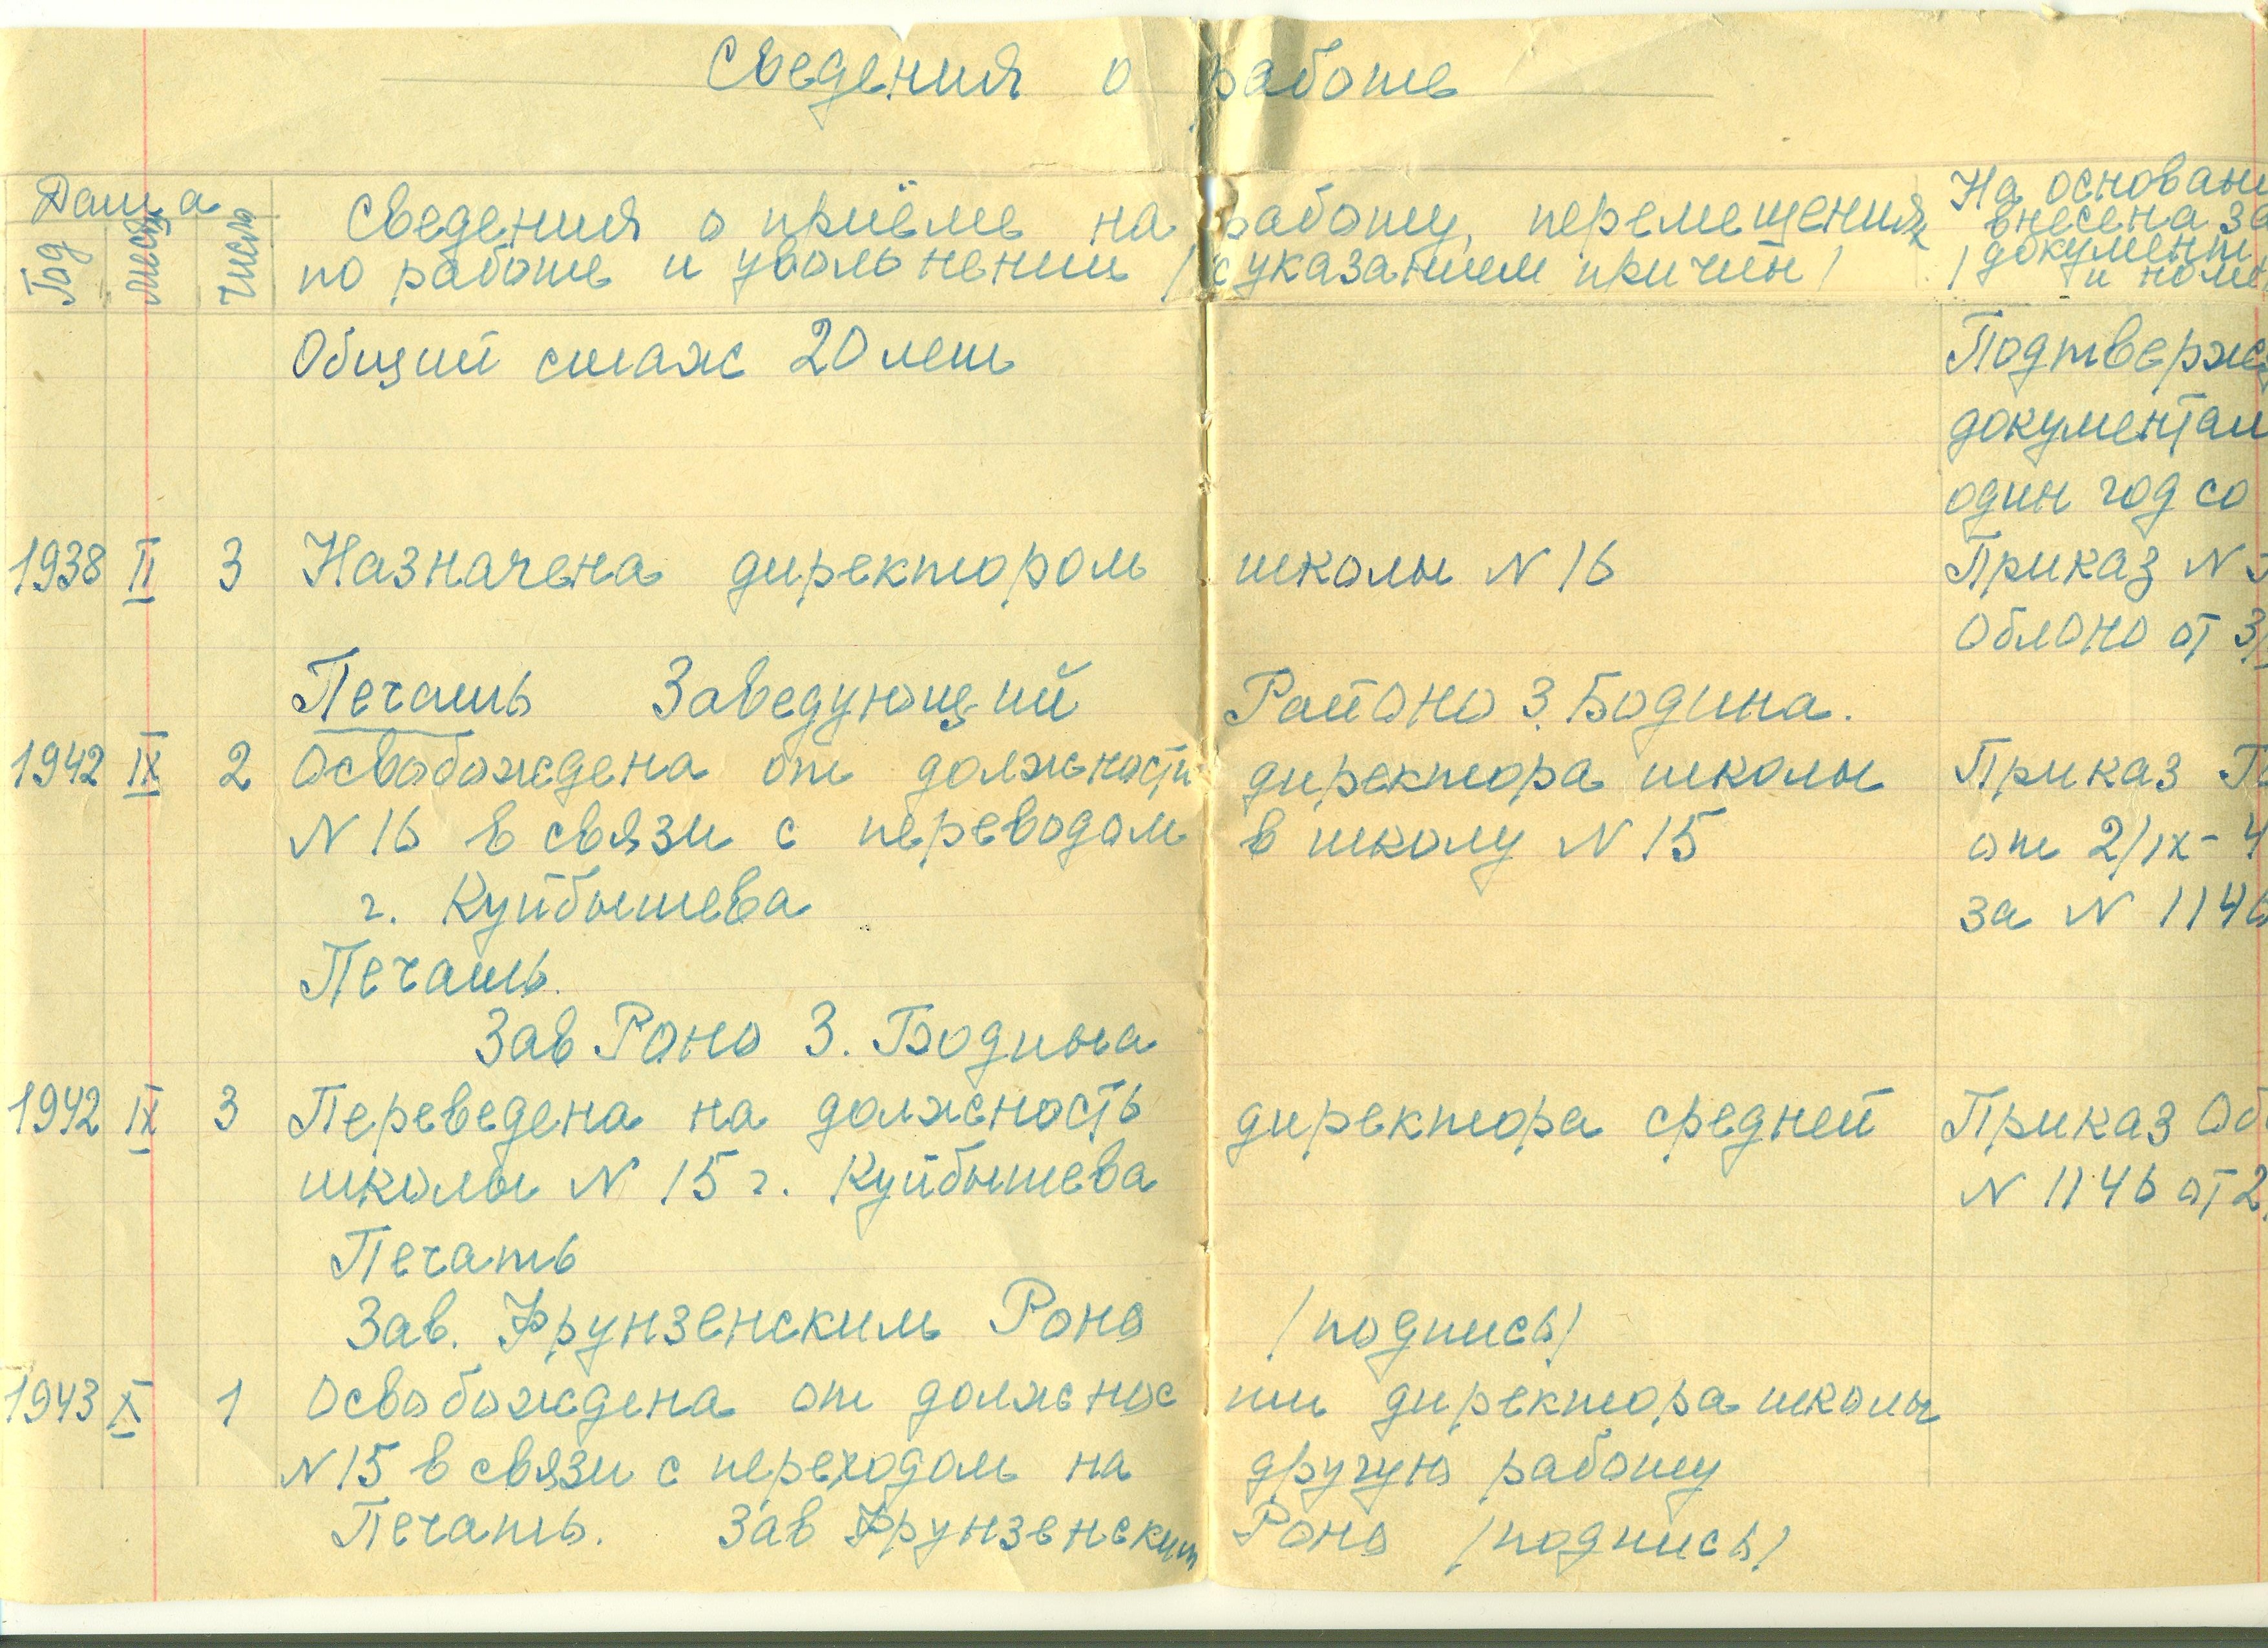 Сведения о работе
Дата
Год месяц число
Сведения о приёме на работу, перемещения
по работе и увольнении /с указанием причин/
На основан
внесена за
документ
/ и ном
Общий стаж 20 лет
Подтверж
документам
один год со
1938 II 3 Назначена директором школы N 16 Приказ N
Облоно от 3
Печать Заведующий РайОно З. Бодина.
1942 IX 2 Освобождена от должности директора школы Приказ
N 16 в связи с переводом в школу N 15 от 2/IX-4
г. Куйбышева за N 1146
Печать.
Зав Роно З. Бодина
1942 IX 3 Переведена на должность директора средней Приказ Об
школы N 15 г. Куйбышева N 1146 от 2
Печать
Зав. Фрунзенским Роно /подпись/
1943 X 1 Освобождена от должнос ти директора школы
N 15 в связи с переходом на другую работу
Печать. Зав Фрунзенским Роно /подпись/